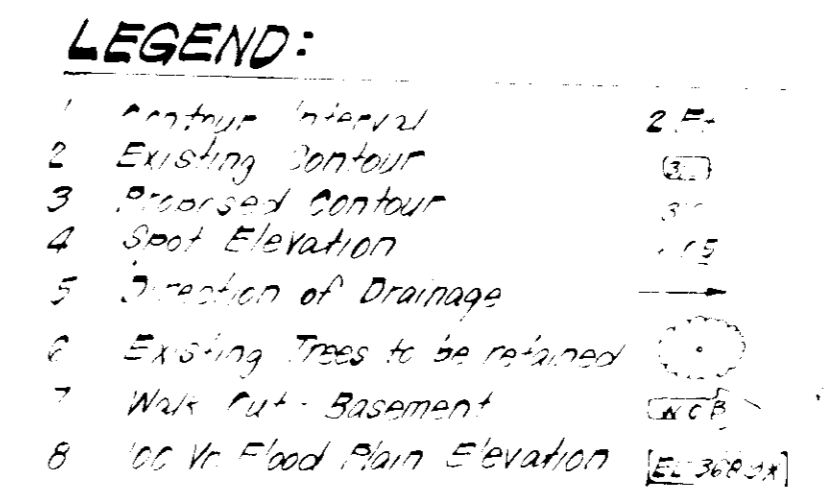 LEGEND:
1 Contour Interval 2 Ft
2 Existing Contour
3 Proposed Contour
4 Spot Elevation
5 Direction of Drainage
6 Existing Trees to be retained
7 Walk Out - Basement
8 100 Yr. Flood Plain Elevation